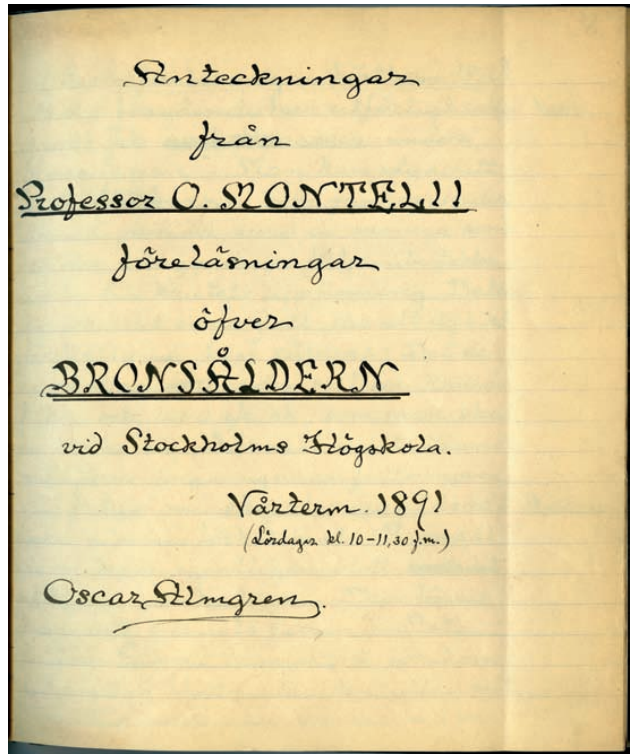 Anteckningar
från
Professor O. MONTELII
föreläsningar
öfver
BRONSÅLDERN
vid Stockholms Högskola.
Vårterm. 1891
(Lördagar kl. 10-11,30 f.m.)
Oscar Almgren.